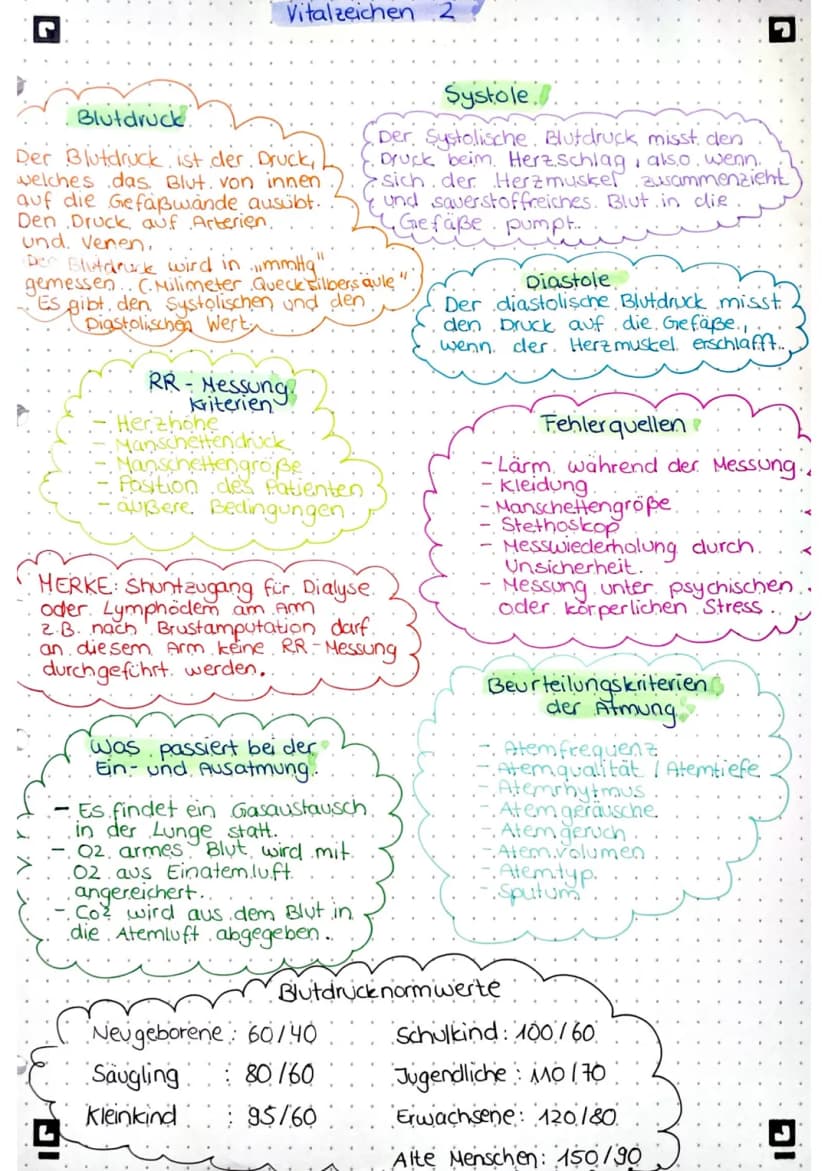 Vitalzeichen 2
Blutdruck
Der Blutdruck ist der Druck,
welches das Blut von innen
auf die Gefäßwände ausübt.
Den Druck auf Arterien
und Venen.
Der Blutdruck wird in „mmHg"
gemessen. (Milimeter Quecksilbersäule"
Es gibt den Systolischen und den
Diastolischen Wert.
Systole
Der Systolische Blutdruck misst den
Druck beim Herzschlag, also wenn
sich der Herzmuskel zusammenzieht
und sauerstoffreiches Blut in die
Gefäße pumpt.
Diastole
Der diastolische Blutdruck misst
den Druck auf die Gefäße,
wenn der Herzmuskel erschlafft.
RR - Messung
Kriterien
- Herzhöhe
- Manschettendruck
- Manschettengröße
- Position des Patienten
- äußere Bedingungen
Fehlerquellen
- Lärm während der Messung
- Kleidung
- Manschettengröße
- Stethoskop
- Messwiederholung durch
Unsicherheit.
- Messung unter psychischen
oder körperlichen Stress.
MERKE: Shuntzugang für Dialyse
oder Lymphödem am Arm
z.B. nach Brustamputation darf
an diesem Arm keine RR-Messung
durchgeführt werden.
Beurteilungskriterien
der Atmung
- Atemfrequenz
- Atemqualität / Atemtiefe
- Atemrhytmus
- Atemgeräusche
- Atemgeruch
- Atemvolumen
- Atemtyp
- Sputum
Was passiert bei der
Ein- und Ausatmung.
- Es findet ein Gasaustausch
in der Lunge statt.
- O2 armes Blut wird mit
O2 aus Einatemluft
angereichert.
- Co2 wird aus dem Blut in
die Atemluft abgegeben.
Blutdrucknormwerte
Neugeborene : 60/40
Säugling : 80/60
Kleinkind : 95/60
Schulkind: 100/60
Jugendliche : 110/70
Erwachsene: 120/80
Alte Menschen: 150/90